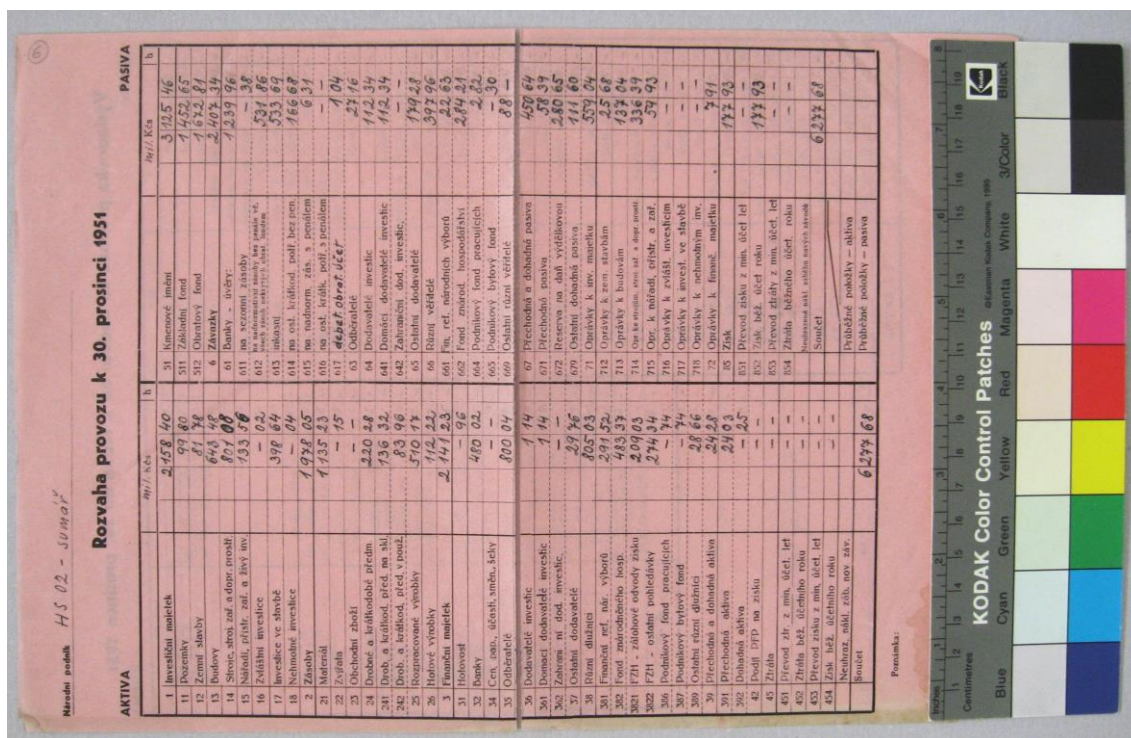 6
Národní podnik
HS 02 - sumář
Rozvaha provozu k 30. prosinci 1951
AKTIVA
mil. Kčs h
1 Investiční majetek 2 158 40
11 Pozemky 99 80
12 Zemní stavby 81 78
13 Budovy 643 48
14 Stroje, stroj. zař. a dopr. prostř. 801 08
15 Nářadí, přístr. zař. a živý inv. 133 56
16 Zvláštní investice - 02
17 Investice ve stavbě 398 64
18 Nehmotné investice - 04
2 Zásoby 1 978 05
21 Materiál 1 135 23
22 Zvířata - 15
23 Obchodní zboží -
24 Drobné a krátkodobé předm. 220 28
241 Drob. a krátkod. před. na skl. 136 32
242 Drob. a krátkod. před. v použ. 83 96
25 Rozpracované výrobky 510 17
26 Hotové výrobky 112 22
3 Finanční majetek 2 141 23
31 Hotovost - 96
32 Banky 480 02
34 Cen. pap., účasti, směn., šeky -
35 Odběratelé 800 04
36 Dodavatelé investic 1 14
361 Domácí dodavatelé investic 1 14
362 Zahraniční dod. investic. -
37 Ostatní dodavatelé 29 76
38 Různí dlužníci 805 03
381 Finanční ref. nár. výborů 291 52
382 Fond znárodněného hosp. 483 37
3821 FZH - zálohové odvody zisku 209 03
3822 FZH - ostatní pohledávky 274 34
386 Podnikový fond pracujících -
387 Podnikový bytový fond - 74
389 Ostatní různí dlužníci 28 66
39 Přechodná a dohadná aktiva 24 28
391 Přechodná aktiva 24 03
392 Dohadná aktiva - 25
42 Podíl DFP na zisku
45 Ztráta
451 Převod ztr. z min. účet. let
452 Ztráta běž. účetního roku
453 Převod zisku z min. účet. let
454 Zisk běž. účetního roku
Neuhraz. nákl. záb. nov. záv.
Součet 6 277 68
Poznámka:
PASIVA
mil. Kčs h
51 Kmenové jmění 3 125 46
511 Základní fond 1 452 65
512 Obratový fond 1 672 81
6 Závazky 2 407 34
61 Banky - úvěry: 1 239 96
611 na sezonní zásoby - 38
612 531 86
613 inkasní 533 69
614 na ost. krátkod. potř. bez pen. 166 68
615 na nadnorm. zás. s penálem 6 31
616 na ost. krátk. potř. s penálem -
617 debet. obrat. účet 1 04
63 Odběratelé 27 16
64 Dodavatelé investic 112 34
641 Domácí dodavatelé investic 112 34
642 Zahraniční dod. investic. -
65 Ostatní dodavatelé 179 28
66 Různí věřitelé 397 96
661 Fin. ref. národních výborů 22 63
662 Fond znárod. hospodářství 284 21
664 Podnikový fond pracujících 2 82
665 Podnikový bytový fond - 30
669 Ostatní různí věřitelé 88 -
67 Přechodná a dohadná pasiva 450 64
671 Přechodná pasiva 58 39
672 Reserva na daň výdělkovou 280 65
679 Ostatní dohadná pasiva 111 60
71 Oprávky k inv. majetku 559 04
712 Oprávky k zem. stavbám 25 68
713 Oprávky k budovám 137 04
714 336 39
715 Opr. k nářadí, přístr. a zař. 59 93
716 Oprávky k zvlášt. investicím -
717 Oprávky k invest. ve stavbě -
718 Oprávky k nehmotným inv. -
72 Oprávky k finanč. majetku 7 91
85 Zisk 177 93
851 Převod zisku z min. účet let -
852 Zisk běž. účet roku 177 93
853 Převod ztráty z min. účet. let -
854 Ztráta běžného účet. roku -
Součet 6 277 68
Průběžné položky - aktiva
Průběžné položky - pasiva
Inches
Centimetres
KODAK Color Control Patches
©Eastman Kodak Company, 1999
Kodak
Blue Cyan Green Yellow Red Magenta White 3/Color Black
1 2 3 4 5 6 7 8
1 2 3 4 5 6 7 8 9 10 11 12 13 14 15 16 17 18 19